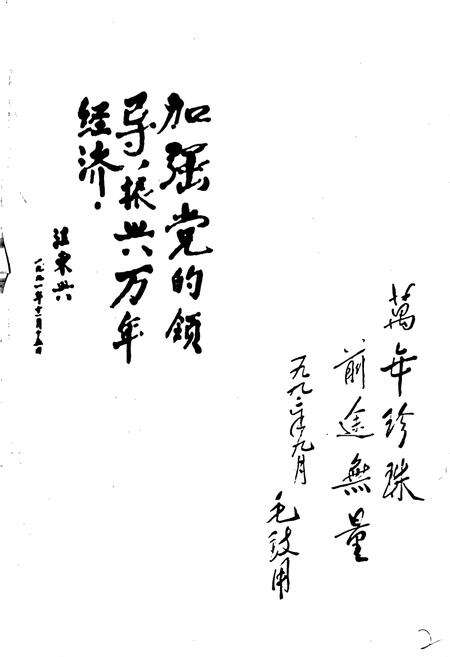 加强党的领
导，振兴万年
经济．
汪东兴
一九九一年十一月十五日
萬年珍珠
前途無量
一九九二年九月
毛致用
2